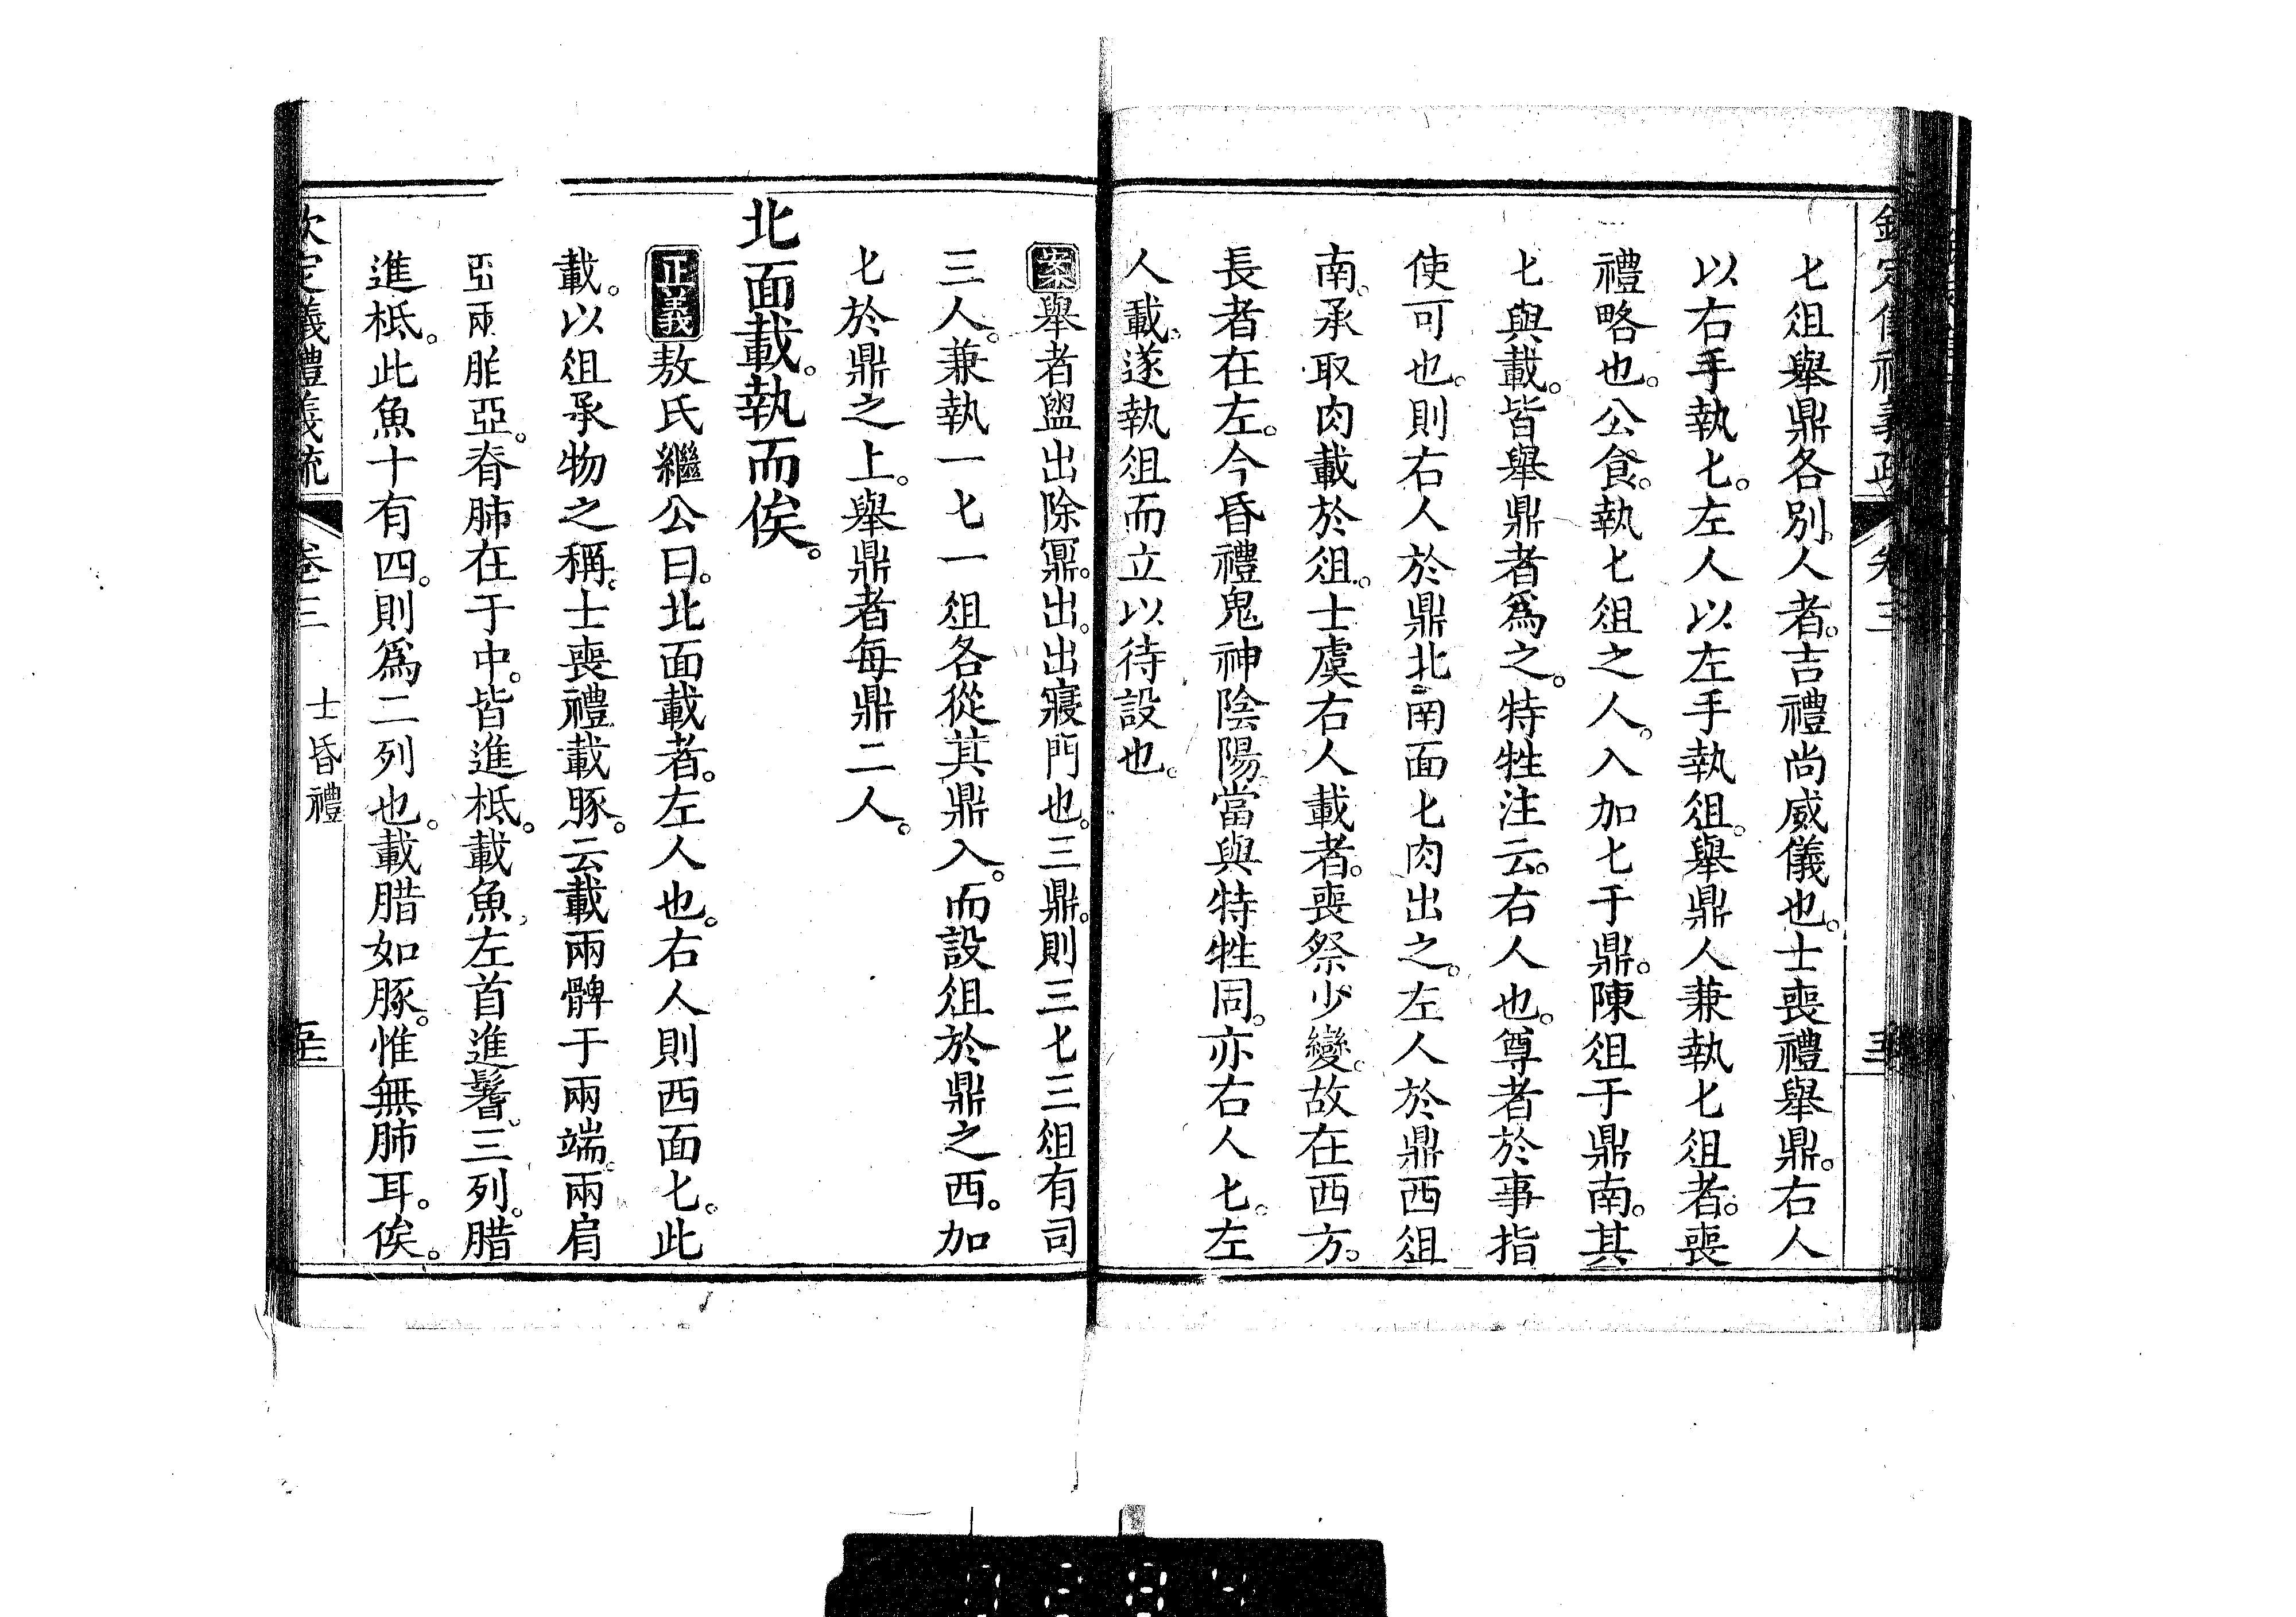 匕俎舉鼎各別人者。吉禮尚威儀也。士喪禮舉鼎。右人
以右手執匕。左人以左手執俎。舉鼎人兼執匕俎者。喪
禮略也。公食。執匕俎之人。入加匕于鼎。陳俎于鼎南。其
匕與載。皆舉鼎者爲之。特牲注云。右人也。尊者於事指
使可也。則右人於鼎北南面匕肉出之。左人於鼎西俎
南。承取肉載於俎。士虞右人載者。喪祭少變。故在西方。
長者在左。今昏禮鬼神陰陽。當與特牲同。亦右人匕。左
人載。遂執俎而立以待設也。
案舉者盥出除鼏。出。出寢門也。三鼎。則三匕三俎有司
三人。兼執一匕一俎各從其鼎入。而設俎於鼎之西。加
匕於鼎之上。舉鼎者每鼎二人。
北面載。執而俟。
正義敖氏繼公曰。北面載者。左人也。右人則西面匕。此
載。以俎承物之稱。士喪禮載豚。云載兩髀于兩端。兩肩
亞兩胉亞。脊肺在于中。皆進柢。載魚。左首進鬐。三列。腊
進柢。此魚十有四。則爲二列也。載腊如豚。惟無肺耳。俟。
欽定儀禮義疏 卷三 士昏禮